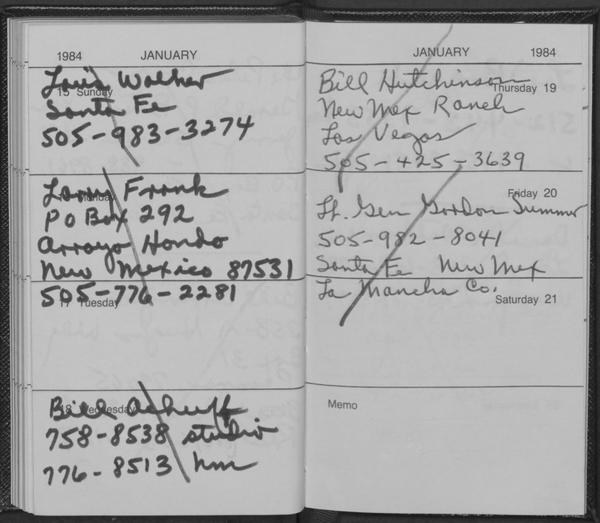 1984 JANUARY
15 Sunday
Lois Walker
Santa Fe
505-983-3274
Monday
Larry Frank
PO Box 292
Arroyo Hondo
New Mexico 87531
505-776-2281
17 Tuesday
18 Wednesday
Bill
758-8538 studio
776-8513 hm
JANUARY 1984
Thursday 19
Bill Hutchinson
New Mex Ranch
Las Vegas
505-425-3639
Friday 20
Lt. Gen Gordon Sumner
505-982-8041
Santa Fe New Mex
La Mancha Co.
Saturday 21
Memo